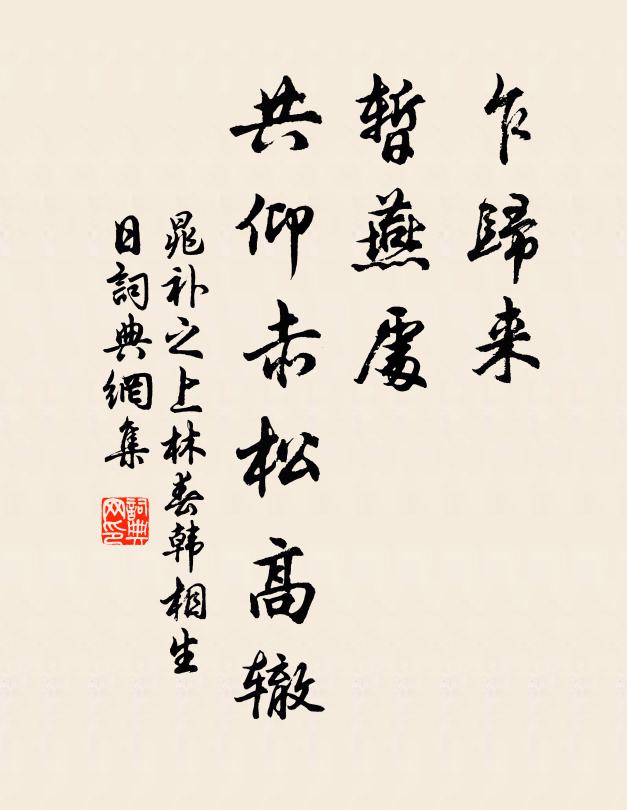 乍歸来
暫燕處
共仰赤松高辙
晁补之上林春韩相生
日詞典網集
詞典
网印